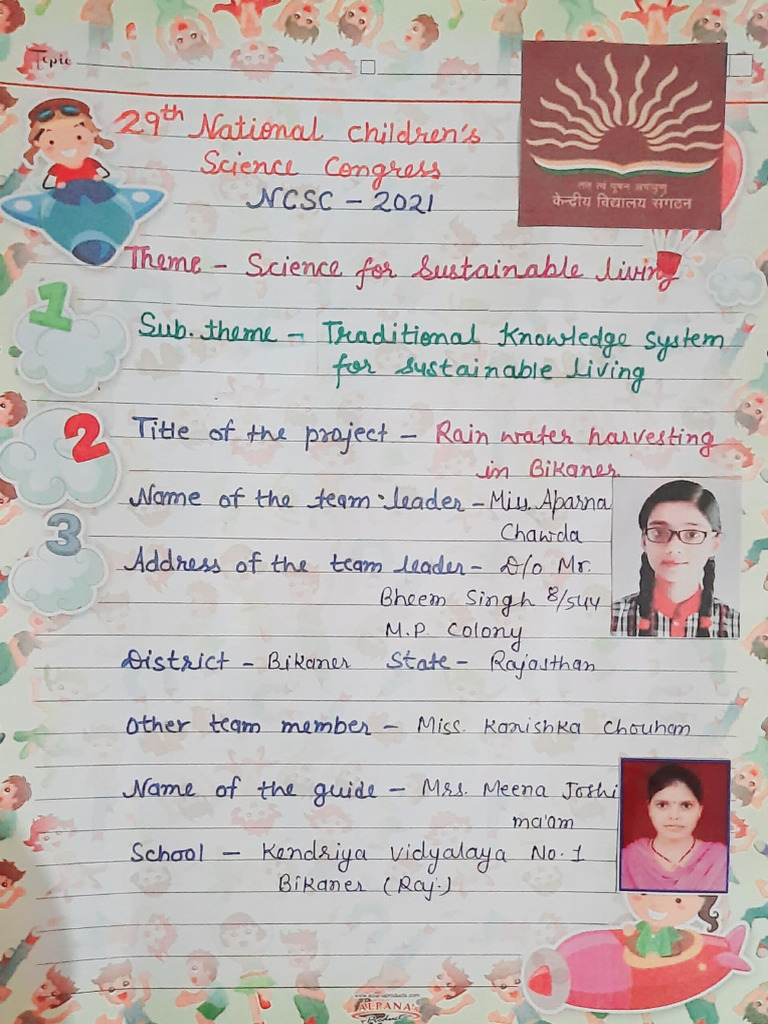 Topic
29th National children's
Science Congress
NCSC - 2021
केन्द्रीय विद्यालय संगठन
Theme - Science for Sustainable living
1
Sub. theme - Traditional Knowledge system
for sustainable living
2
Title of the project - Rain water harvesting
in Bikaner
3
Name of the team leader - Miss. Aparna
Chawda
Address of the team leader - D/o Mr.
Bheem Singh 8/544
M.P. Colony
District - Bikaner State - Rajasthan
Other team member - Miss. Kanishka Chouhan
Name of the guide - Mrs. Meena Joshi
ma'am
School - Kendriya Vidyalaya No. 1
Bikaner (Raj.)
KALPANA's
Product